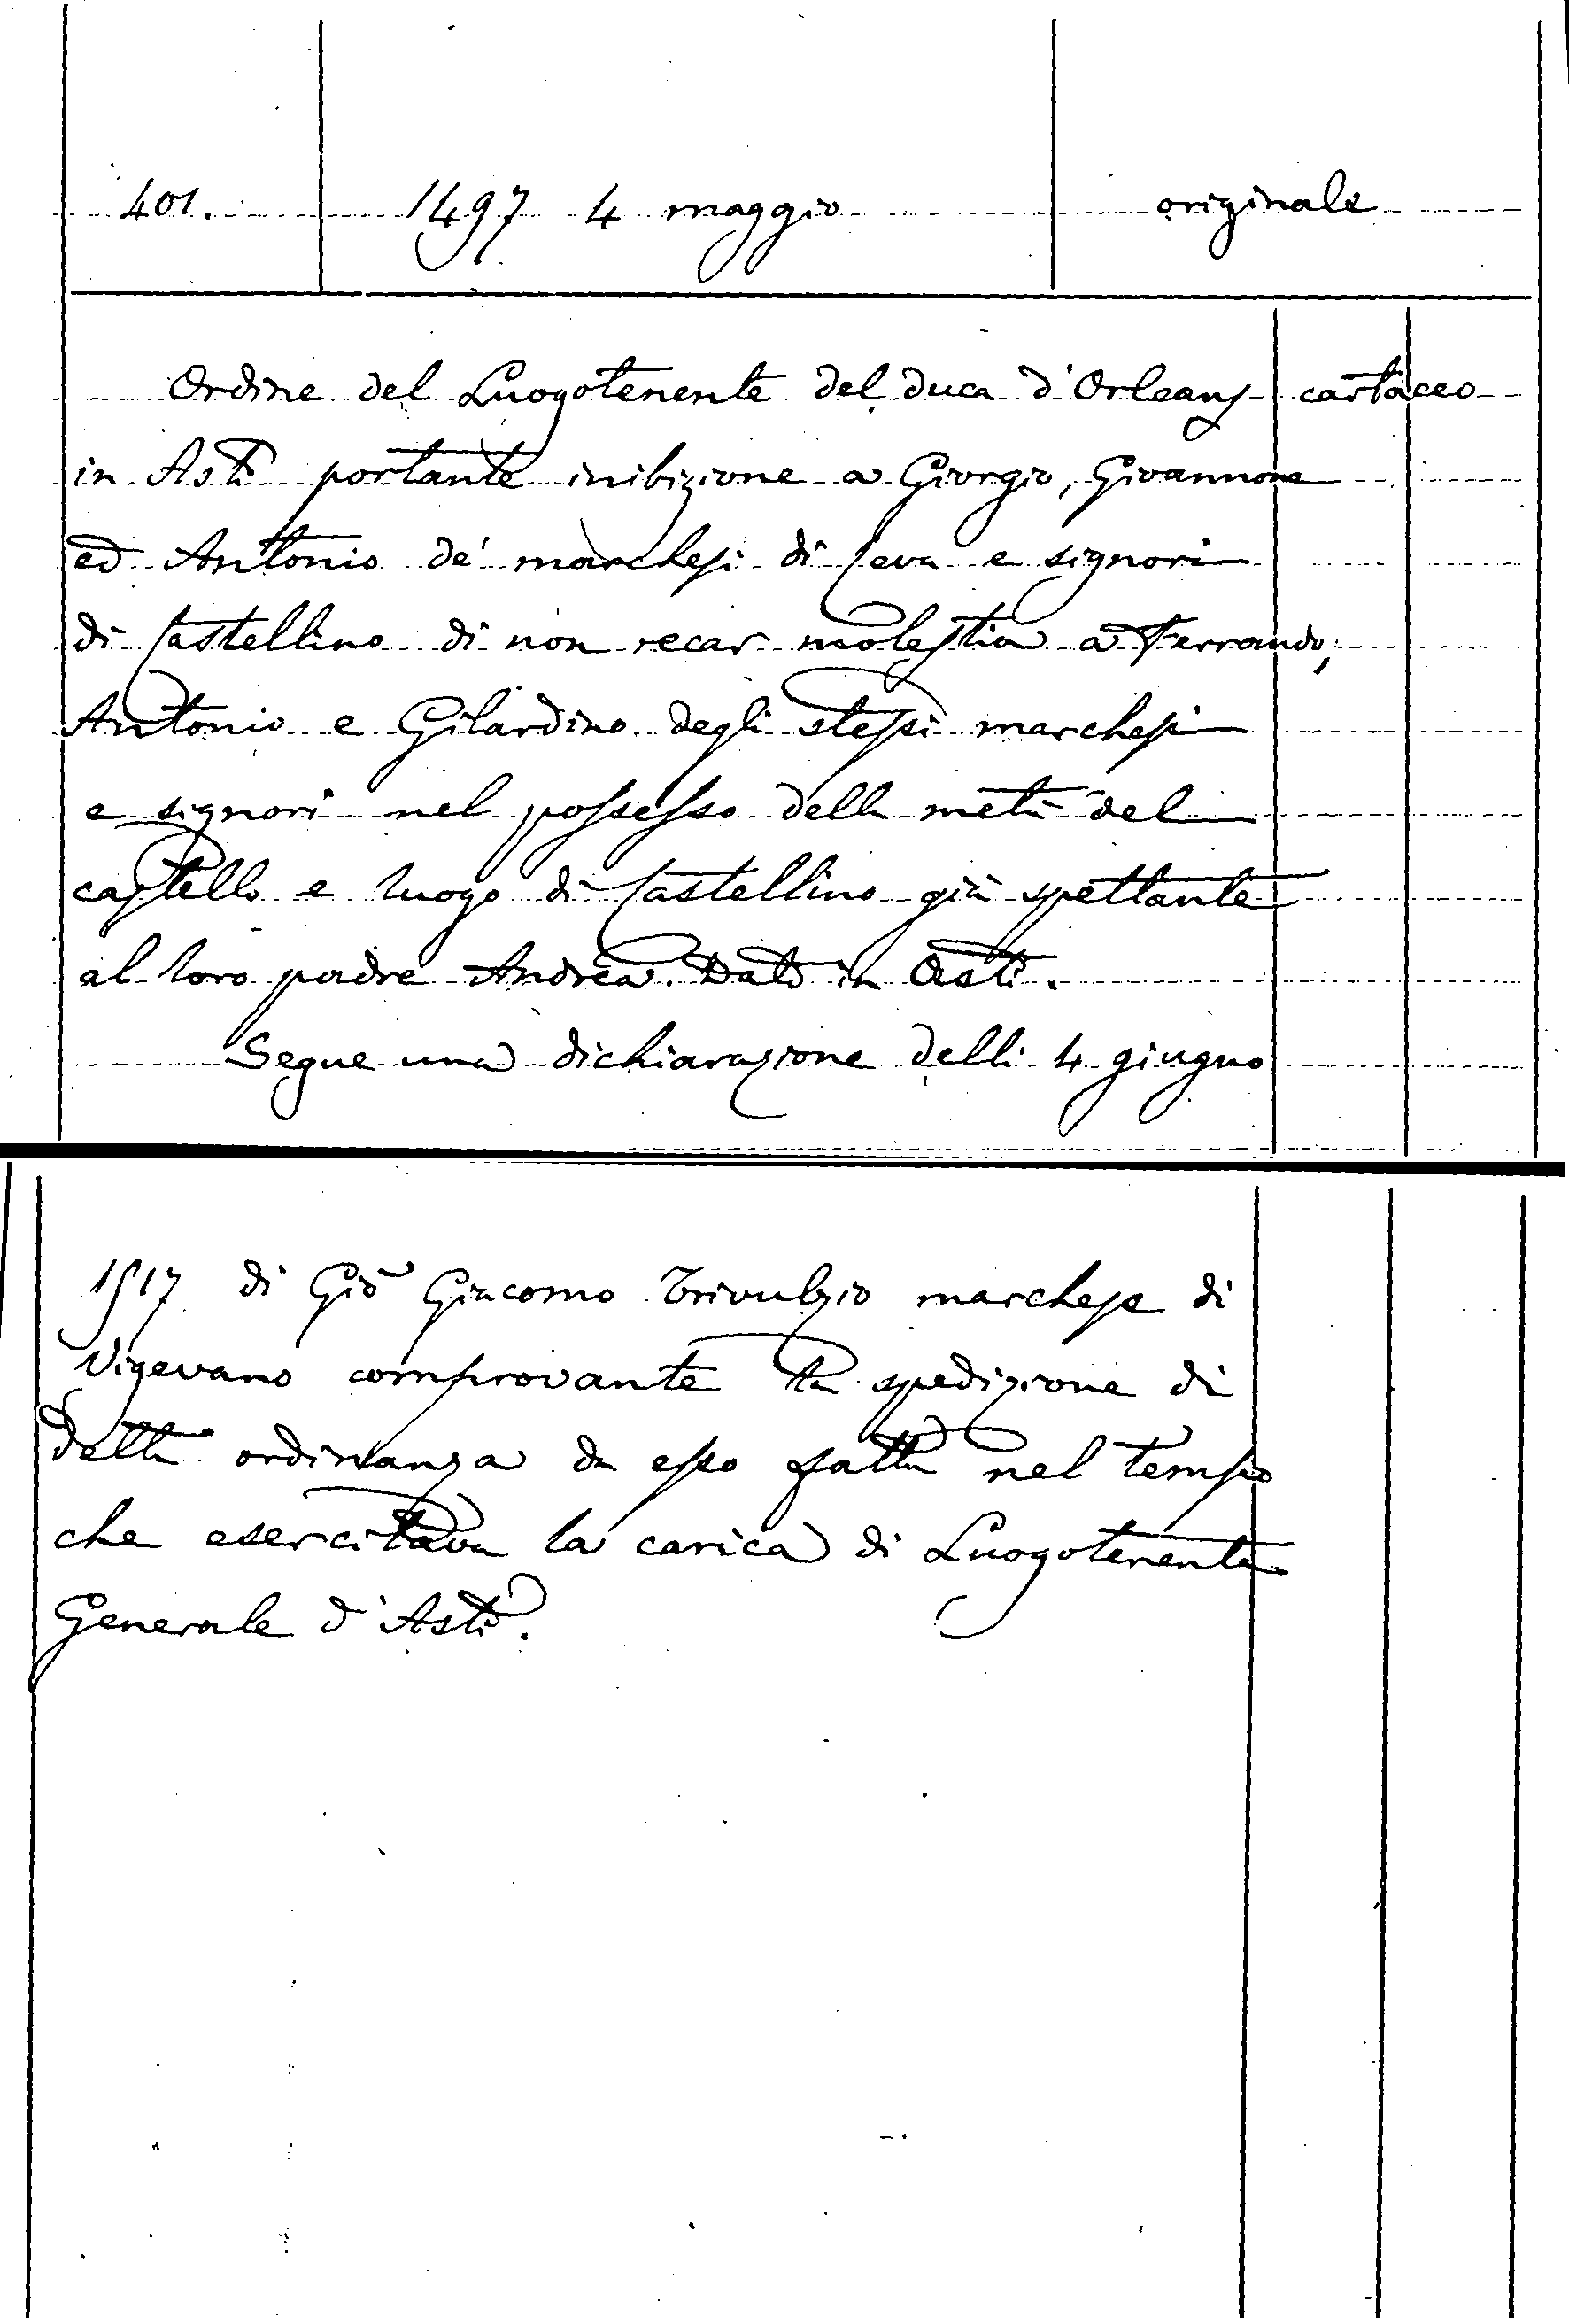 401. 1497 4 maggio originale
Ordine del Luogotenente del duca d'Orleans cartaceo
in Asti portante inibizione a Giorgio, Giovannone
ed Antonio de' marchesi di Ceva e signori
di Castellino di non recar molestia a Ferrando,
Antonio e Gilardino degli stessi marchesi
e signori nel possesso della metà del
castello e luogo di Castellino già spettante
al loro padre Andrea. Dato in Asti.
Segue una dichiarazione delli 4 giugno
1517 di Gio Giacomo Trivulzio marchese di
Vigevano comprovante la spedizione di
detta ordinanza da esso fatta nel tempo
che esercitava la carica di Luogotenente
Generale d'Asti.